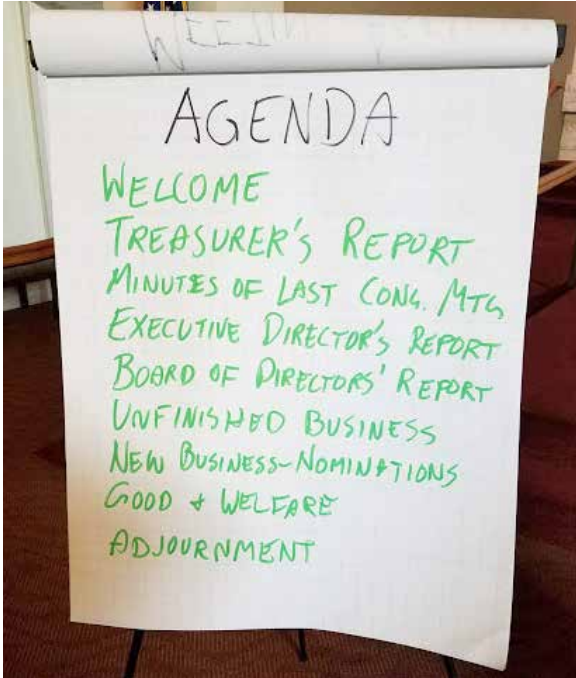 AGENDA
WELCOME
TREASURER'S REPORT
MINUTES OF LAST CONG. MTG
EXECUTIVE DIRECTOR'S REPORT
BOARD OF DIRECTORS' REPORT
UNFINISHED BUSINESS
NEW BUSINESS-NOMINATIONS
GOOD + WELFARE
ADJOURNMENT